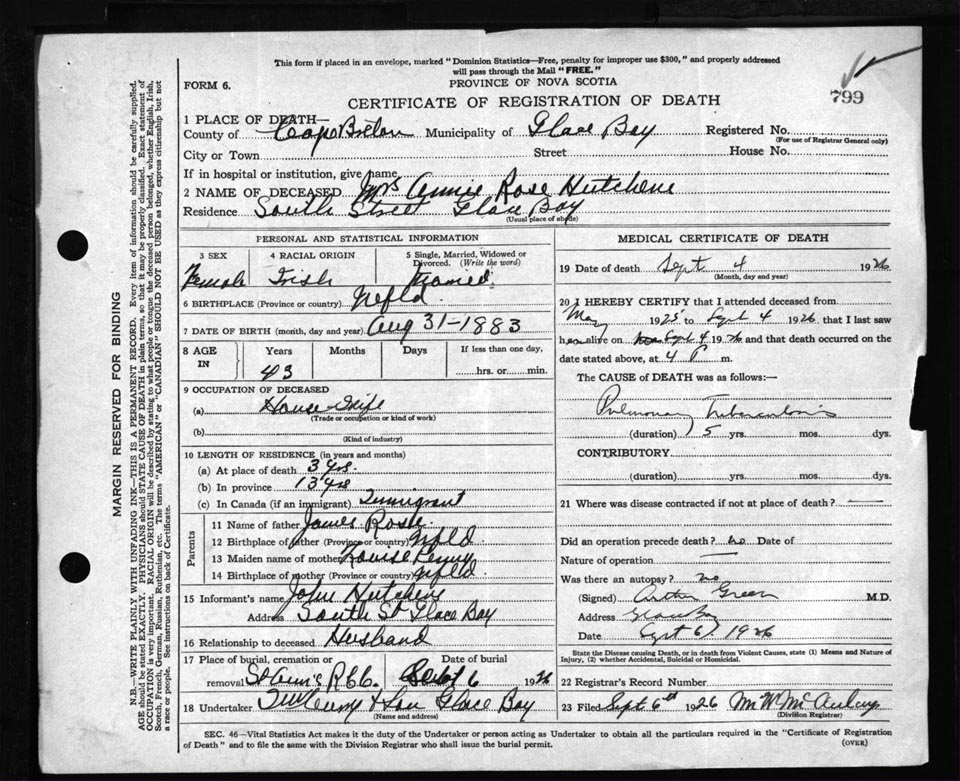 This form if placed in an envelope, marked "Dominion Statistics—Free, penalty for improper use $300," and properly addressed
will pass through the Mail "FREE."
FORM 6.
PROVINCE OF NOVA SCOTIA
799
CERTIFICATE OF REGISTRATION OF DEATH
1 PLACE OF DEATH—
County of Cape Breton Municipality of Glace Bay Registered No.
(For use of Registrar General only)
City or Town Street House No.
If in hospital or institution, give name
2 NAME OF DECEASED Mrs Annie Rose Hutchens
Residence South Street Glace Bay
(Usual place of abode)
PERSONAL AND STATISTICAL INFORMATION
3 SEX 4 RACIAL ORIGIN 5 Single, Married, Widowed or
Divorced. (Write the word)
Female Irish Married
6 BIRTHPLACE (Province or country) Nfld.
7 DATE OF BIRTH (month, day and year) Aug 31-1883
8 AGE IN Years Months Days If less than one day,
43 hrs. or min.
9 OCCUPATION OF DECEASED
(a) House-Wife
(Trade or occupation or kind of work)
(b)
(Kind of industry)
10 LENGTH OF RESIDENCE (in years and months)
(a) At place of death 3 yrs.
(b) In province 13 yrs
(c) In Canada (if an immigrant) Immigrant
Parents
11 Name of father James
12 Birthplace of father (Province or country) Nfld
13 Maiden name of mother Louise Penny
14 Birthplace of mother (Province or country) Nfld
15 Informant's name John Hutchens
Address South St Glace Bay
16 Relationship to deceased Husband
17 Place of burial, cremation or Date of burial
removal St Ann's R.C.C. Sept 6 1926
18 Undertaker & Son Glace Bay
(Name and address)
MEDICAL CERTIFICATE OF DEATH
19 Date of death Sept 4 1926
(Month, day and year)
20 I HEREBY CERTIFY that I attended deceased from
May 1925 to Sept 4 1926 that I last saw
her alive on Sept 4 1926 and that death occurred on the
date stated above, at 4 P m.
The CAUSE OF DEATH was as follows:—
Pulmonary Tuberculosis
(duration) 5 yrs. mos. dys.
CONTRIBUTORY
(duration) yrs. mos. dys.
21 Where was disease contracted if not at place of death? —
Did an operation precede death? no Date of
Nature of operation —
Was there an autopsy? no
(Signed) Arthur Green M.D.
Address Glace Bay
Date Sept 6, 1926
State the Disease causing Death, or in death from Violent Causes, state (1) Means and Nature of
Injury, (2) whether Accidental, Suicidal or Homicidal.
22 Registrar's Record Number
23 Filed Sept 6th 1926
(Division Registrar)
SEC. 46—Vital Statistics Act makes it the duty of the Undertaker or person acting as Undertaker to obtain all the particulars required in the "Certificate of Registration
of Death" and to file the same with the Division Registrar who shall issue the burial permit.
(OVER)
MARGIN RESERVED FOR BINDING
N.B.—WRITE PLAINLY WITH UNFADING INK—THIS IS A PERMANENT RECORD. Every item of information should be carefully supplied.
AGE should be stated EXACTLY. PHYSICIANS should STATE CAUSE OF DEATH in plain terms, so that it may be properly classified. Exact statement of
OCCUPATION is very important. RACIAL ORIGIN will be described by stating to what people or tongue the deceased person belonged, whether English, Irish,
Scotch, French, German, Russian, Ruthenian, etc. The terms "AMERICAN" or "CANADIAN" SHOULD NOT BE USED as they express citizenship but not
a race or people. See instructions on back of Certificate.